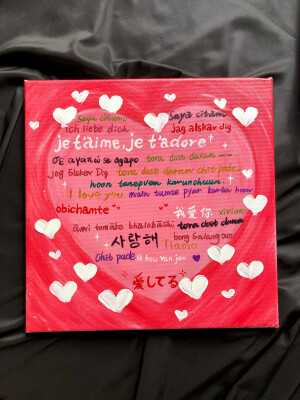 Saya citamu Saya citamu
ich liebe dich Jag alskar dig
je t'aime, je t'adore!
σε αγαπώ se agapo tora dost daram
jeg Elsker Dig tora dost daram chit pade
hoon tanepvem karunohuun
I love you main tumse pyar karta hoon
obichamte 我爱你 vivian
ami tomake bhalobashi tora dost daram
사랑해 bong Salang Oan
Tiamo
chit pade ik hou van jou
愛してる